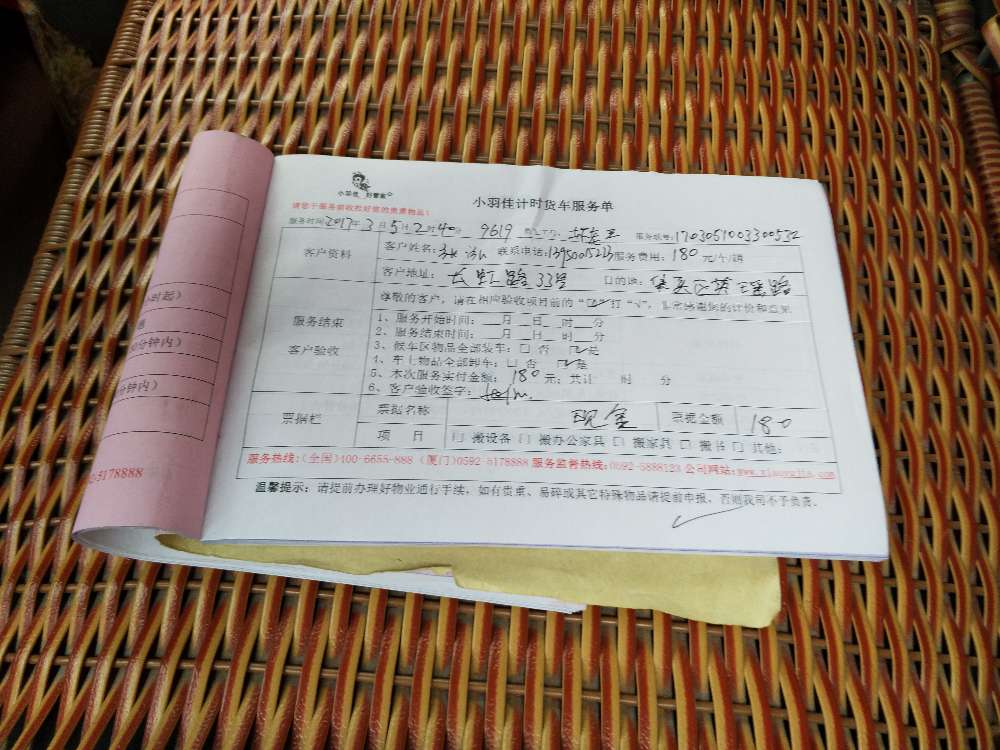 小羽佳 好管家
小羽佳计时货车服务单
请您于服务前收拾好您的贵重物品！
服务时间2017年3月5日2时40分 9619 服务单号:1703051003300532
客户资料 客户姓名: 联系电话:13950015223 服务费用:180元/个/趟
客户地址: 长虹路33号 目的地:
服务结束
客户验收
尊敬的客户，请在相应验收项目前的“□”打“√”，非常感谢您的评价和意见
1、服务开始时间：__月__日__时__分
2、服务结束时间：__月__日__时__分
3、候车区物品全部装车：□ 否 ☑是
4、车上物品全部卸车：□ 否 ☑是
5、本次服务实付金额：180元；共计 时 分
6、客户验收签字：
票据栏 票据名称 现金 票据金额 180
项 目 □ 搬设备 □ 搬办公家具 □ 搬家具 □ 搬书 □ 其他：
服务热线：(全国)400-6655-888 (厦门)0592-5178888 服务监督热线:0592-5888123 公司网站:www.xiaoyujia.com
温馨提示：请提前办理好物业通行手续，如有贵重、易碎或其它特殊物品请提前申报，否则我司不予负责。
时起）
分钟内）
分钟内）
5178888